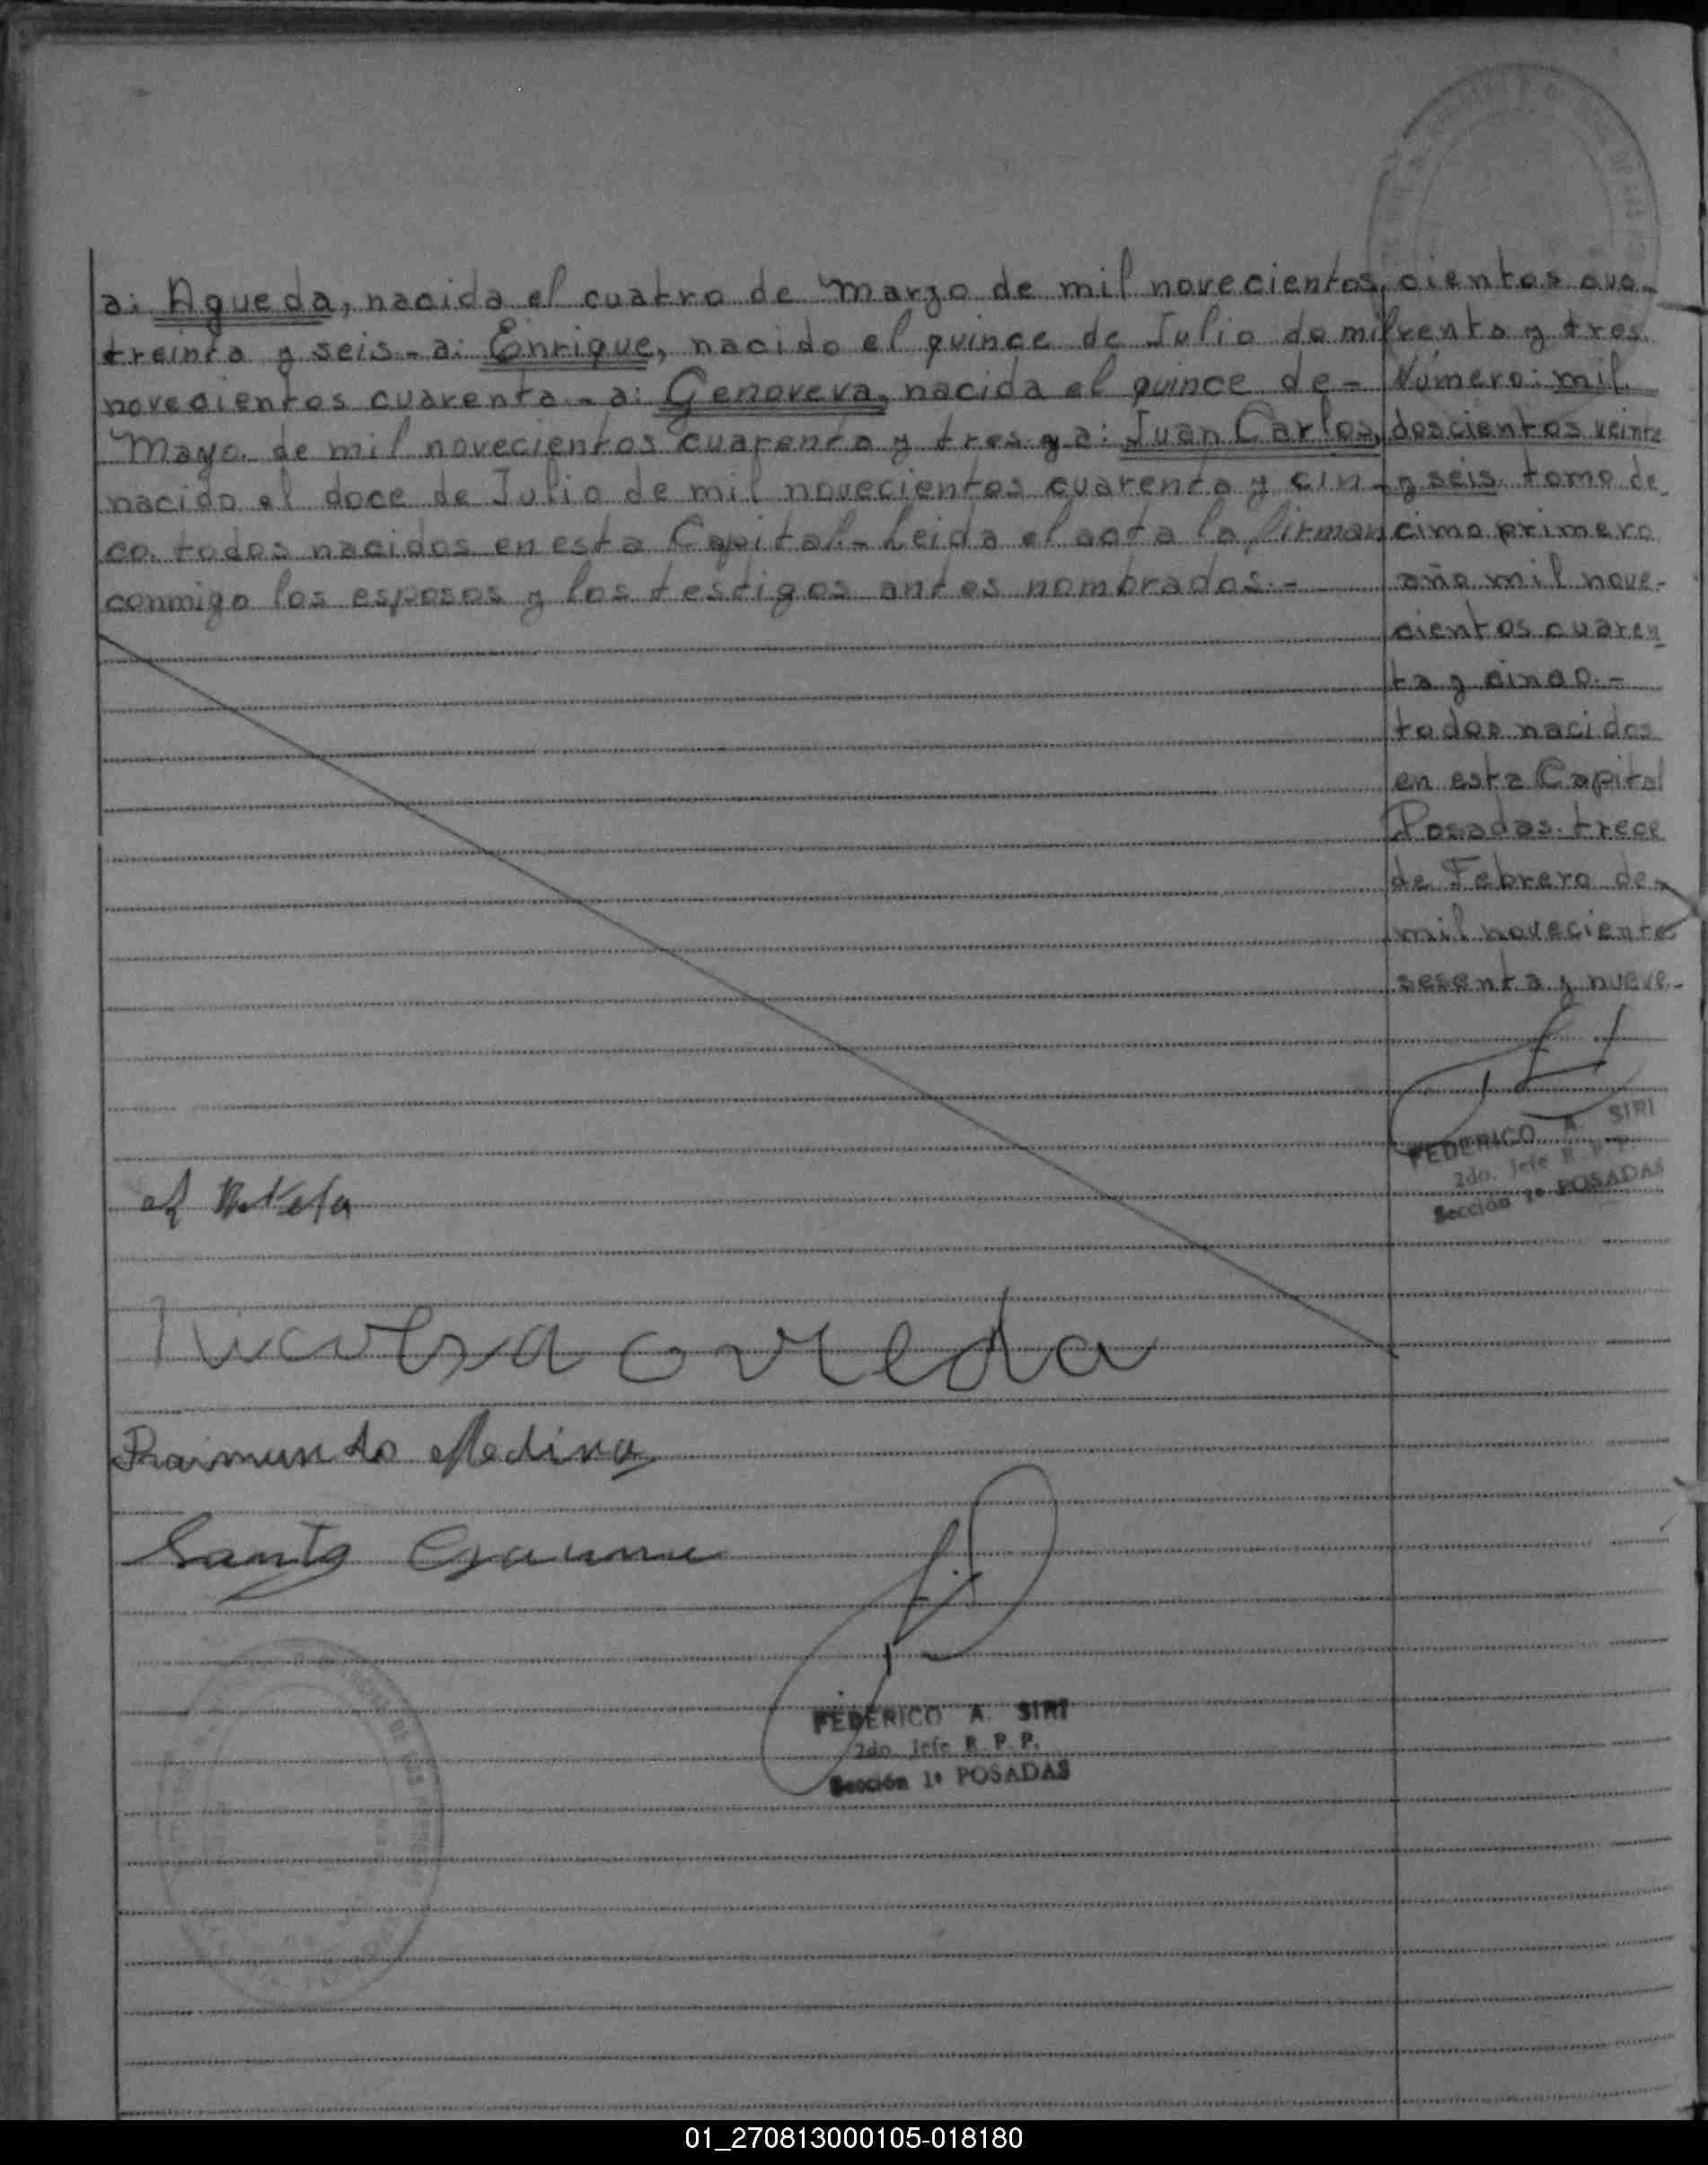 a: Agueda, nacida el cuatro de Marzo de mil novecientos
treinta y seis - a: Enrique, nacido el quince de Julio de mil
novecientos cuarenta - a: Genoveva, nacida el quince de -
Mayo de mil novecientos cuarenta y tres y a: Juan Carlos,
nacido el doce de Julio de mil novecientos cuarenta y cin-
co. todos nacidos en esta Capital.- Leida el acta la firman
conmigo los esposos y los testigos antes nombrados.-
cientos cua-
renta y tres.
Número: mil
doscientos veinte
y seis tomo de
cimo primero
año mil nove-
cientos cuaren
ta y cinco.-
todos nacidos
en esta Capital
Posadas. trece
de Febrero de-
mil novecientos
sesenta y nueve-
FEDERICO A. SIRI
2do. Jefe R. P. P.
Sección 1ª POSADAS
oveda
Raimundo Medina
Santo
FEDERICO A. SIRI
2do. Jefe R. P. P.
Sección 1ª POSADAS
01_270813000105-018180